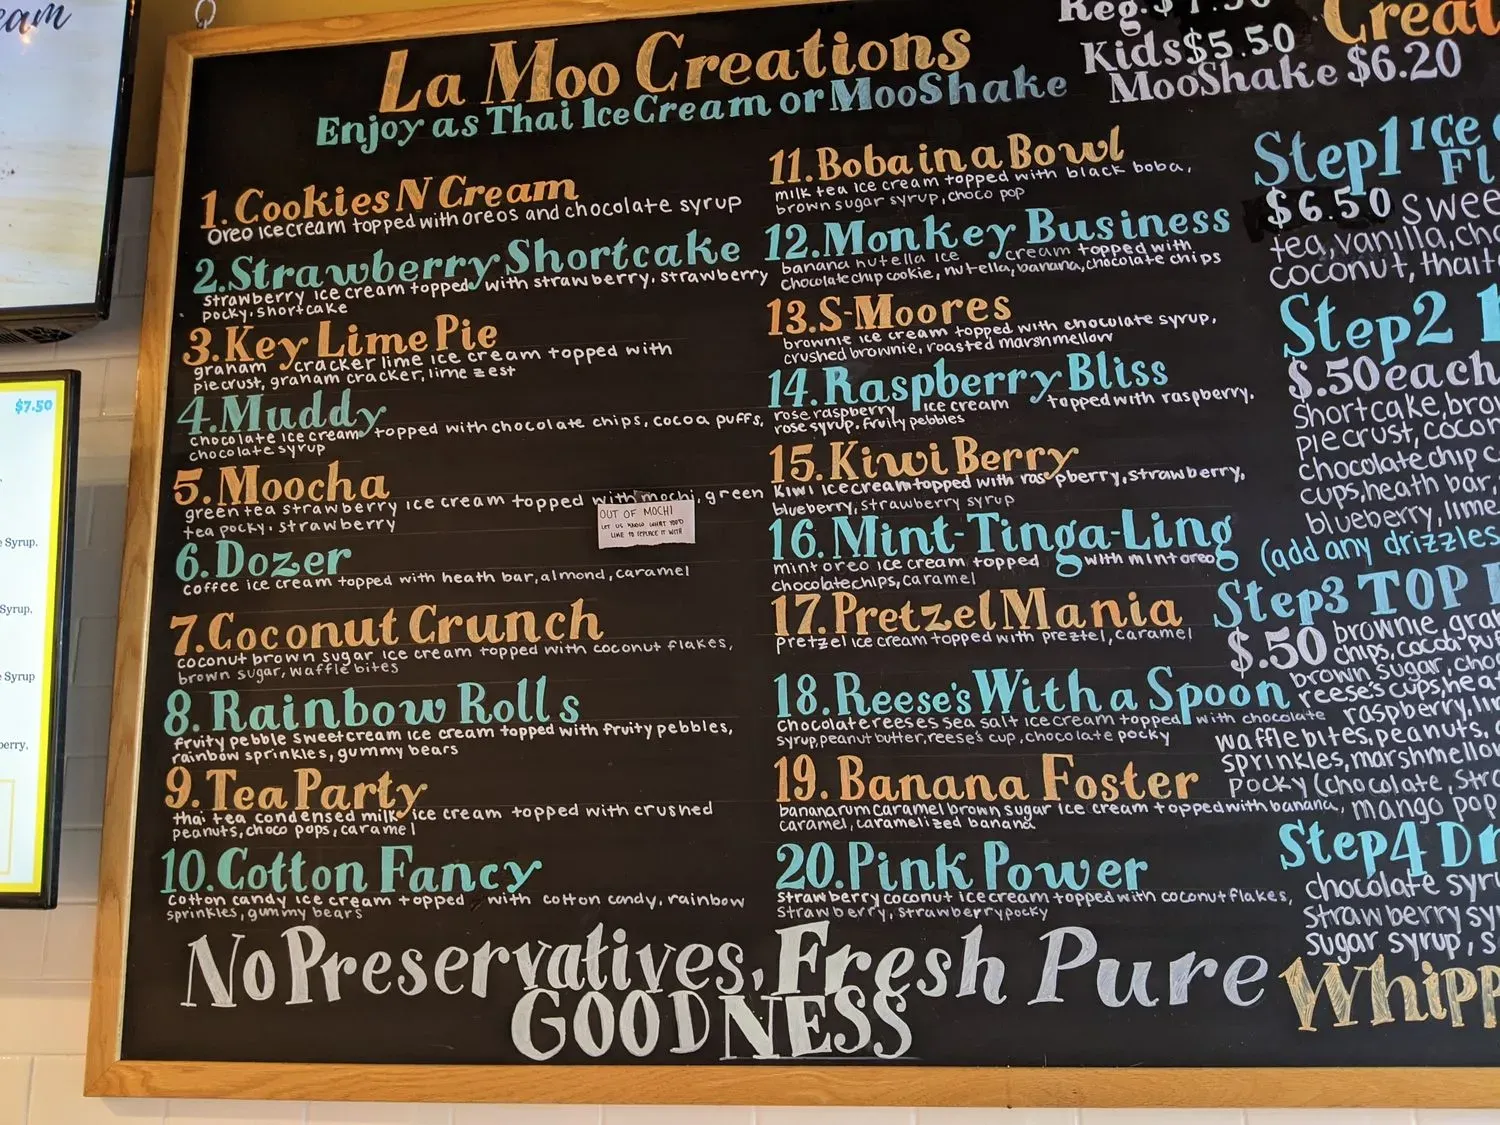 eam
$7.50
Syrup.
Syrup,
Syrup
erry,
La Moo Creations
Enjoy as Thai Ice Cream or MooShake
Kids $5.50
MooShake $6.20
1. Cookies N Cream
Oreo ice cream topped with oreos and chocolate syrup
2. Strawberry Shortcake
strawberry ice cream topped with strawberry, strawberry
pocky, shortcake
3. Key Lime Pie
graham cracker lime ice cream topped with
piecrust, graham cracker, lime zest
4. Muddy
chocolate ice cream topped with chocolate chips, cocoa puffs,
chocolate syrup
5. Moocha
green tea strawberry ice cream topped with mochi, green
tea pocky, strawberry
OUT OF MOCHI
LET US KNOW WHAT YOU'D
LIKE TO REPLACE IT WITH
6. Dozer
coffee ice cream topped with heath bar, almond, caramel
7. Coconut Crunch
coconut brown sugar ice cream topped with coconut flakes,
brown sugar, waffle bites
8. Rainbow Rolls
fruity pebble sweetcream ice cream topped with fruity pebbles,
rainbow sprinkles, gummy bears
9. Tea Party
thai tea condensed milk ice cream topped with crushed
peanuts, choco pops, caramel
10. Cotton Fancy
Cotton candy ice cream topped with cotton candy, rainbow
sprinkles, gummy bears
11. Boba in a Bowl
milk tea ice cream topped with black boba,
brown sugar syrup, choco pop
12. Monkey Business
banana nutella ice cream topped with
chocolate chip cookie, nutella, banana, chocolate chips
13. S-Moores
brownie ice cream topped with chocolate syrup,
crushed brownie, roasted marshmellow
14. Raspberry Bliss
rose raspberry ice cream topped with raspberry,
rose syrup, fruity pebbles
15. Kiwi Berry
Kiwi ice cream topped with raspberry, strawberry,
blueberry, strawberry syrup
16. Mint-Tinga-Ling
mint oreo ice cream topped with mint oreo
chocolate chips, caramel
17. Pretzel Mania
Pretzel ice cream topped with preztel, caramel
18. Reese's With a Spoon
chocolate reeses sea salt ice cream topped with chocolate
syrup, peanut butter, reese's cup, chocolate pocky
19. Banana Foster
banana rum caramel brown sugar ice cream topped with banana,
caramel, caramelized banana
20. Pink Power
strawberry coconut ice cream topped with coconut flakes,
Strawberry, strawberry pocky
No Preservatives, Fresh Pure
GOODNESS
Creat
Step 1 Ice
Fl
$6.50 Swee
tea, vanilla, cho
coconut, thai t
Step 2
$.50 each
Shortcake, brow
Piecrust, cocon
chocolate chip c
cups, heath bar,
blueberry, lime
(add any drizzles
Step 3 TOP
$.50 brownie, gra
chips, cocoa pu
brown sugar, choc
reese's cups, hea
raspberry, li
waffle bites, peanuts,
sprinkles, marshmello
pocky (chocolate, stra
mango pop
Step 4 Dr
chocolate syr
Strawberry sy
sugar syrup, s
Whipp